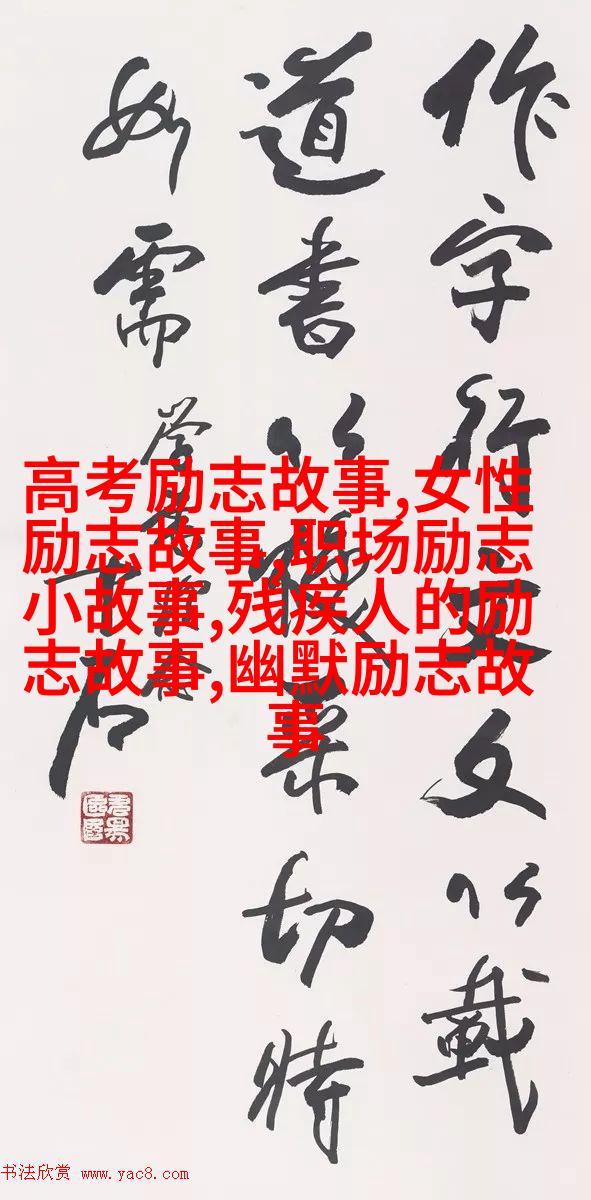 作字行文以載
道書以煥采切時
如需
高考励志故事,女性
励志故事,职场励志
小故事,残疾人的励
志故事,幽默励志故
事
书法欣赏 www.yac8.com